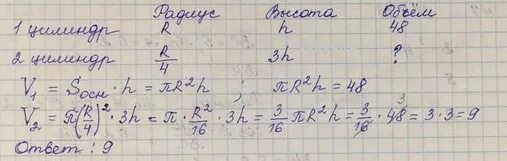 Радиус Высота Объём
1 цилиндр R h 48
2 цилиндр R/4 3h ?
V₁ = Sосн · h = πR²h ; πR²h = 48
V₂ = π(R/4)² · 3h = π · R²/16 · 3h = 3/16 πR²h = 3/16 · 48 3 = 3 · 3 = 9
Ответ : 9